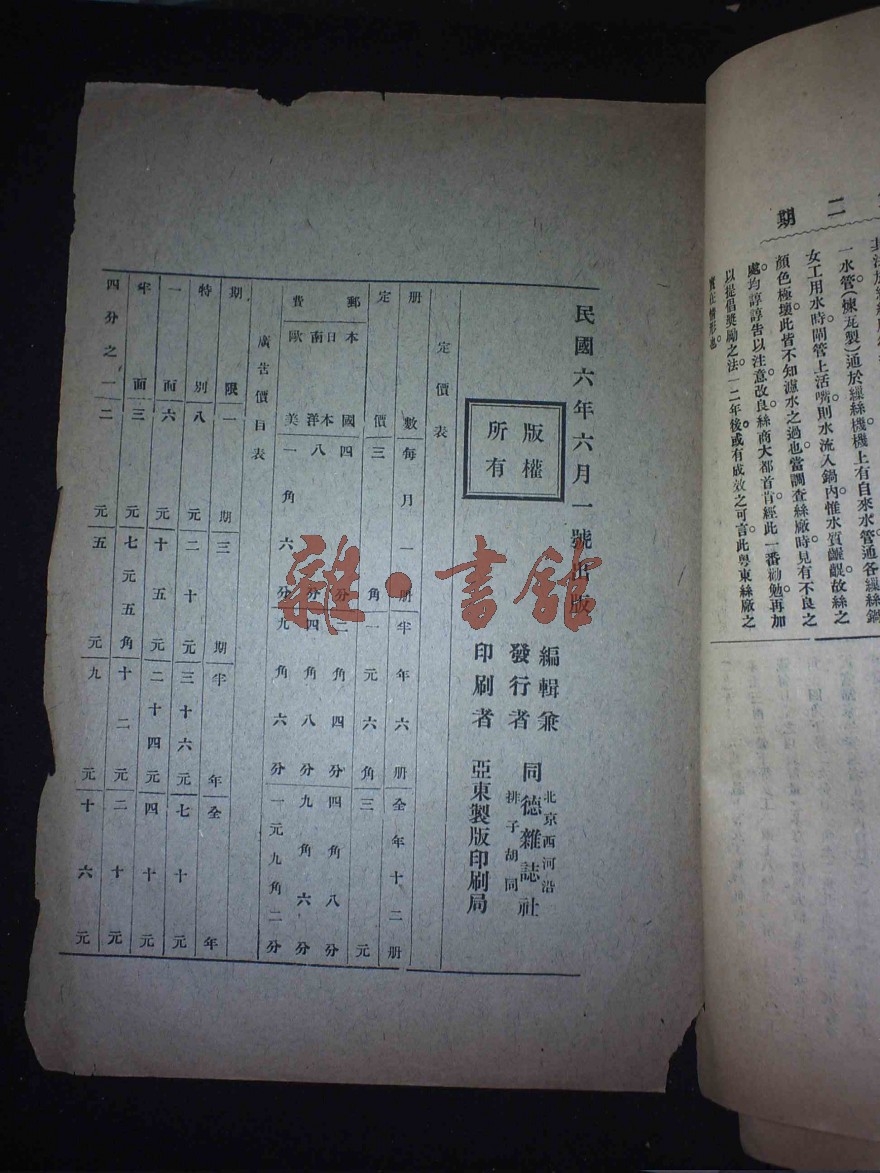 二期
一水管(煉瓦製)通於繅絲機機上有自來水管通各繅絲鍋
女工用水時開管上活嘴則水流入鍋內惟水質齷齪故絲之
顏色極壞此皆不知濾水之過也當調查絲廠時見有不良之
處均諄諄告以注意改良絲商大都首肯經此一番勸勉再加
以提倡奬勵之法一二年後或有成效之可言此粵東絲廠之
實在情形也
民國六年六月一號出版
版權
所有
編輯兼
發行者
北京西河沿
排子胡同
同德雜誌社
印刷者 亞東製版印刷局
定價表
册數 每月一册 半年六册 全年十二册
定價 三角 一元六角 三元
郵費
本國 四分 二角四分 四角八分
日本南洋 八分 四角八分 九角六分
歐美 一角六分 九角六分 一元九角二分
廣告價目表
期限 一期 三期 半年 全年
特別 八元 二十元 三十六元 七十元
一面 六元 十五元 二十四元 四十元
半面 三元 七元五角 十二元 二十元
四分之一 二元 五元 九元 十六元
雜·書館